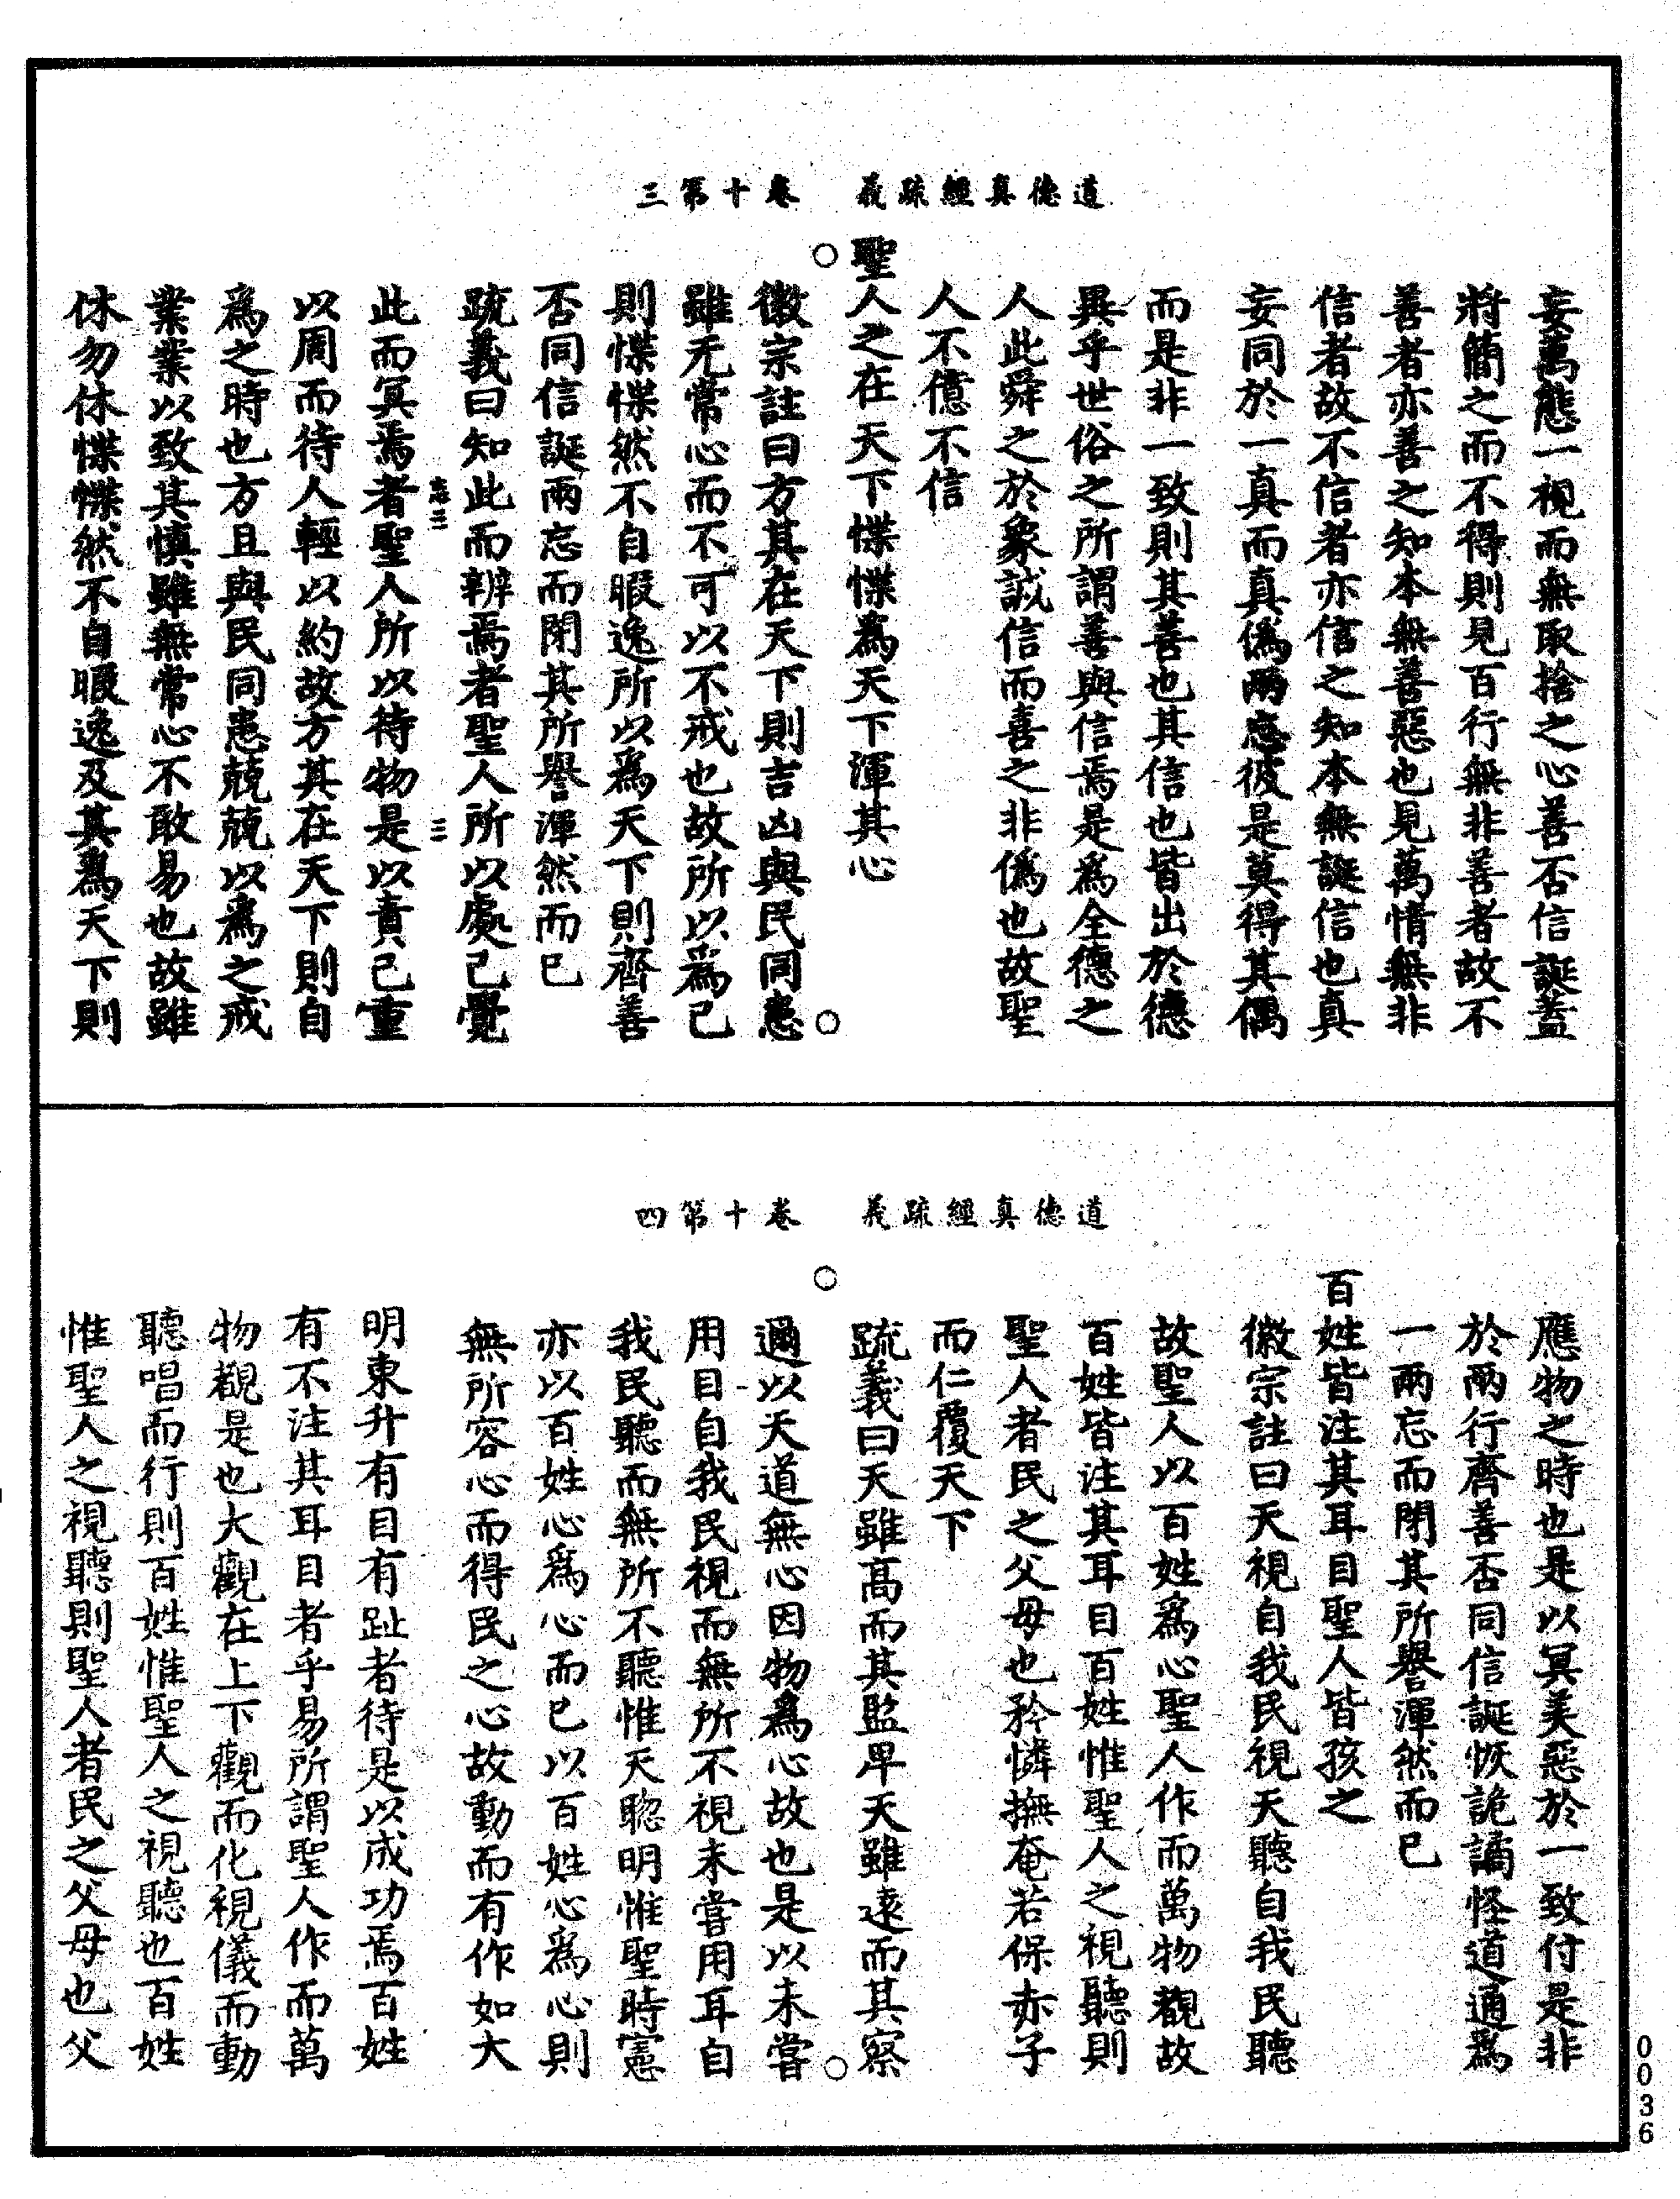 道德真經疏義　卷十第三
妄萬態一視而無取捨之心善否信誕蓋
將簡之而不得則見百行無非善者故不
善者亦善之知本無善惡也見萬情無非
信者故不信者亦信之知本無誕信也真
妄同於一真而真偽兩忘彼是莫得其偶
而是非一致則其善也其信也皆出於德
異乎世俗之所謂善與信焉是為全德之
人此舜之於象誠信而喜之非偽也故聖
人不億不信
聖人之在天下惵惵為天下渾其心
徽宗註曰方其在天下則吉凶與民同患
雖无常心而不可以不戒也故所以為己
則惵惵然不自暇逸所以為天下則齊善
否同信誕兩忘而閉其所譽渾然而已
疏義曰知此而辨焉者聖人所以處己覺
此而冥焉者聖人所以待物是以責己重
以周而待人輕以約故方其在天下則自
為之時也方且與民同患兢兢以為之戒
業業以致其慎雖無常心不敢易也故雖
休勿休惵惵然不自暇逸及其為天下則
道德真經疏義　卷十第四
應物之時也是以冥美惡於一致付是非
於兩行齊善否同信誕恢詭譎怪道通為
一兩忘而閉其所譽渾然而已
百姓皆注其耳目聖人皆孩之
徽宗註曰天視自我民視天聽自我民聽
故聖人以百姓為心聖人作而萬物覩故
百姓皆注其耳目百姓惟聖人之視聽則
聖人者民之父母也矜憐撫奄若保赤子
而仁覆天下
疏義曰天雖高而其監卑天雖遠而其察
邇以天道無心因物為心故也是以未嘗
用目自我民視而無所不視未嘗用耳自
我民聽而無所不聽惟天聰明惟聖時憲
亦以百姓心為心而已以百姓心為心則
無所容心而得民之心故動而有作如大
明東升有目有趾者待是以成功焉百姓
有不注其耳目者乎易所謂聖人作而萬
物覩是也大觀在上下觀而化視儀而動
聽唱而行則百姓惟聖人之視聽也百姓
惟聖人之視聽則聖人者民之父母也父
0036